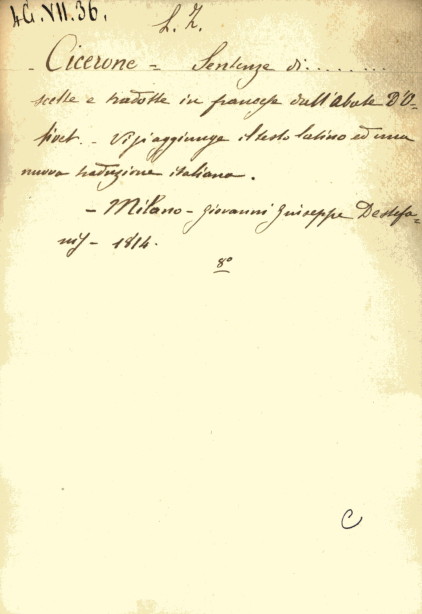 4G.VII.36.
L. Z.
- Cicerone = Sentenze di.........
scelte e tradotte in francese dall'Abate D'O-
livet. - Vi si aggiunge il testo latino ed una
nuova traduzione italiana.
- Milano - Giovanni Giuseppe Destefa-
nis - 1814.
8º
C